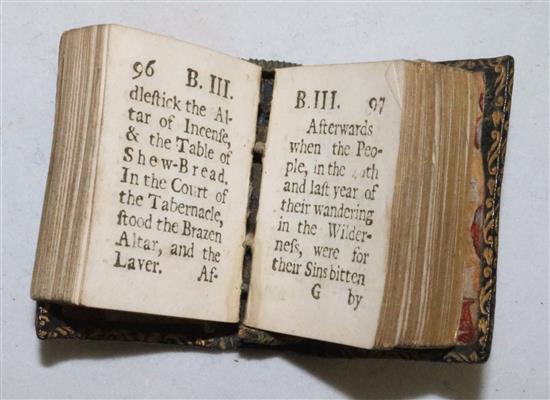 96 B. III.
dleſtick the Al-
tar of Incenſe,
& the Table of
Shew-Bread.
In the Court of
the Tabernacle,
ſtood the Brazen
Altar, and the
Laver. Af-
B. III. 97
Afterwards
when the Peo-
ple, in the
and laſt year of
their wandering
in the Wilder-
neſs, were for
their Sins bitten
G by